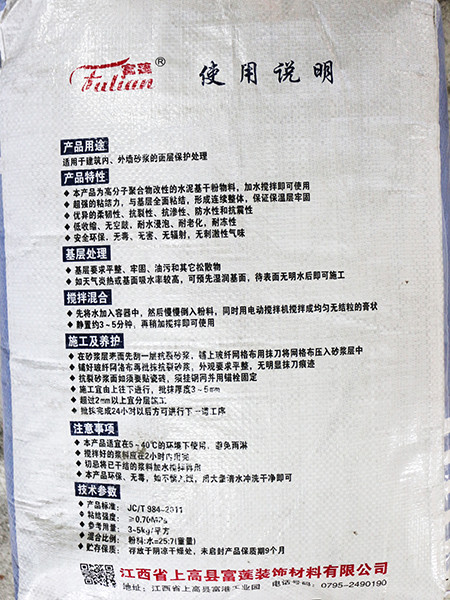 富莲®
Fulian
使用说明
产品用途
适用于建筑内、外墙砂浆的面层保护处理
产品特性
◆ 本产品为高分子聚合物改性的水泥基干粉物料，加水搅拌即可使用
◆ 超强的粘结力，与基层全面粘结，形成连续整体，保证保温层牢固
◆ 优异的柔韧性、抗裂性、抗渗性、防水性和抗震性
◆ 低收缩、无空鼓、耐水浸泡、耐老化，耐冻性
◆ 安全环保，无毒、无害、无辐射，无刺激性气味
基层处理
◆ 基层要求平整、牢固、油污和其它松散物
◆ 如天气炎热或基面吸水率较高，可预先湿润基面，待表面无明水后即可施工
搅拌混合
◆ 先将水加入容器中，然后慢慢倒入粉料，同时用电动搅拌机搅拌成均匀无结粒的膏状
◆ 静置约3～5分钟，再稍加搅拌即可使用
施工及养护
◆ 在砂浆层表面先刮一层抗裂砂浆，铺上玻纤网格布用抹刀将网格布压入砂浆层中
◆ 铺好玻纤网格布再批抹抗裂砂浆，外观要求平整，无明显抹刀痕迹
◆ 抗裂砂浆面如须要贴瓷砖，须挂钢网并用锚栓固定
◆ 施工宜由上往下进行，批抹厚度3～5mm
◆ 超过2mm以上宜分层施工
◆ 批抹完成24小时以后方可进行下一道工序
注意事项
◆ 本产品适宜在5～40℃的环境下使用，避免雨淋
◆ 搅拌好的浆料应在2小时内用完
◆ 切忌将已干结的浆料加水搅拌再用
◆ 本产品环保、无毒，如不慎入眼，用大量清水冲洗干净即可
技术参数
◆ 产品标准： JC/T 984-2011
◆ 粘结强度： ≥0.70MPa
◆ 参考用量： 3~5kg/平方
◆ 混合比例： 粉料:水=25:7(重量)
◆ 贮存保质： 存放于阴凉干燥处，未启封产品保质期9个月
江西省上高县富莲装饰材料有限公司
地址：江西省上高县富港工业园 电话号码：0795-2490190